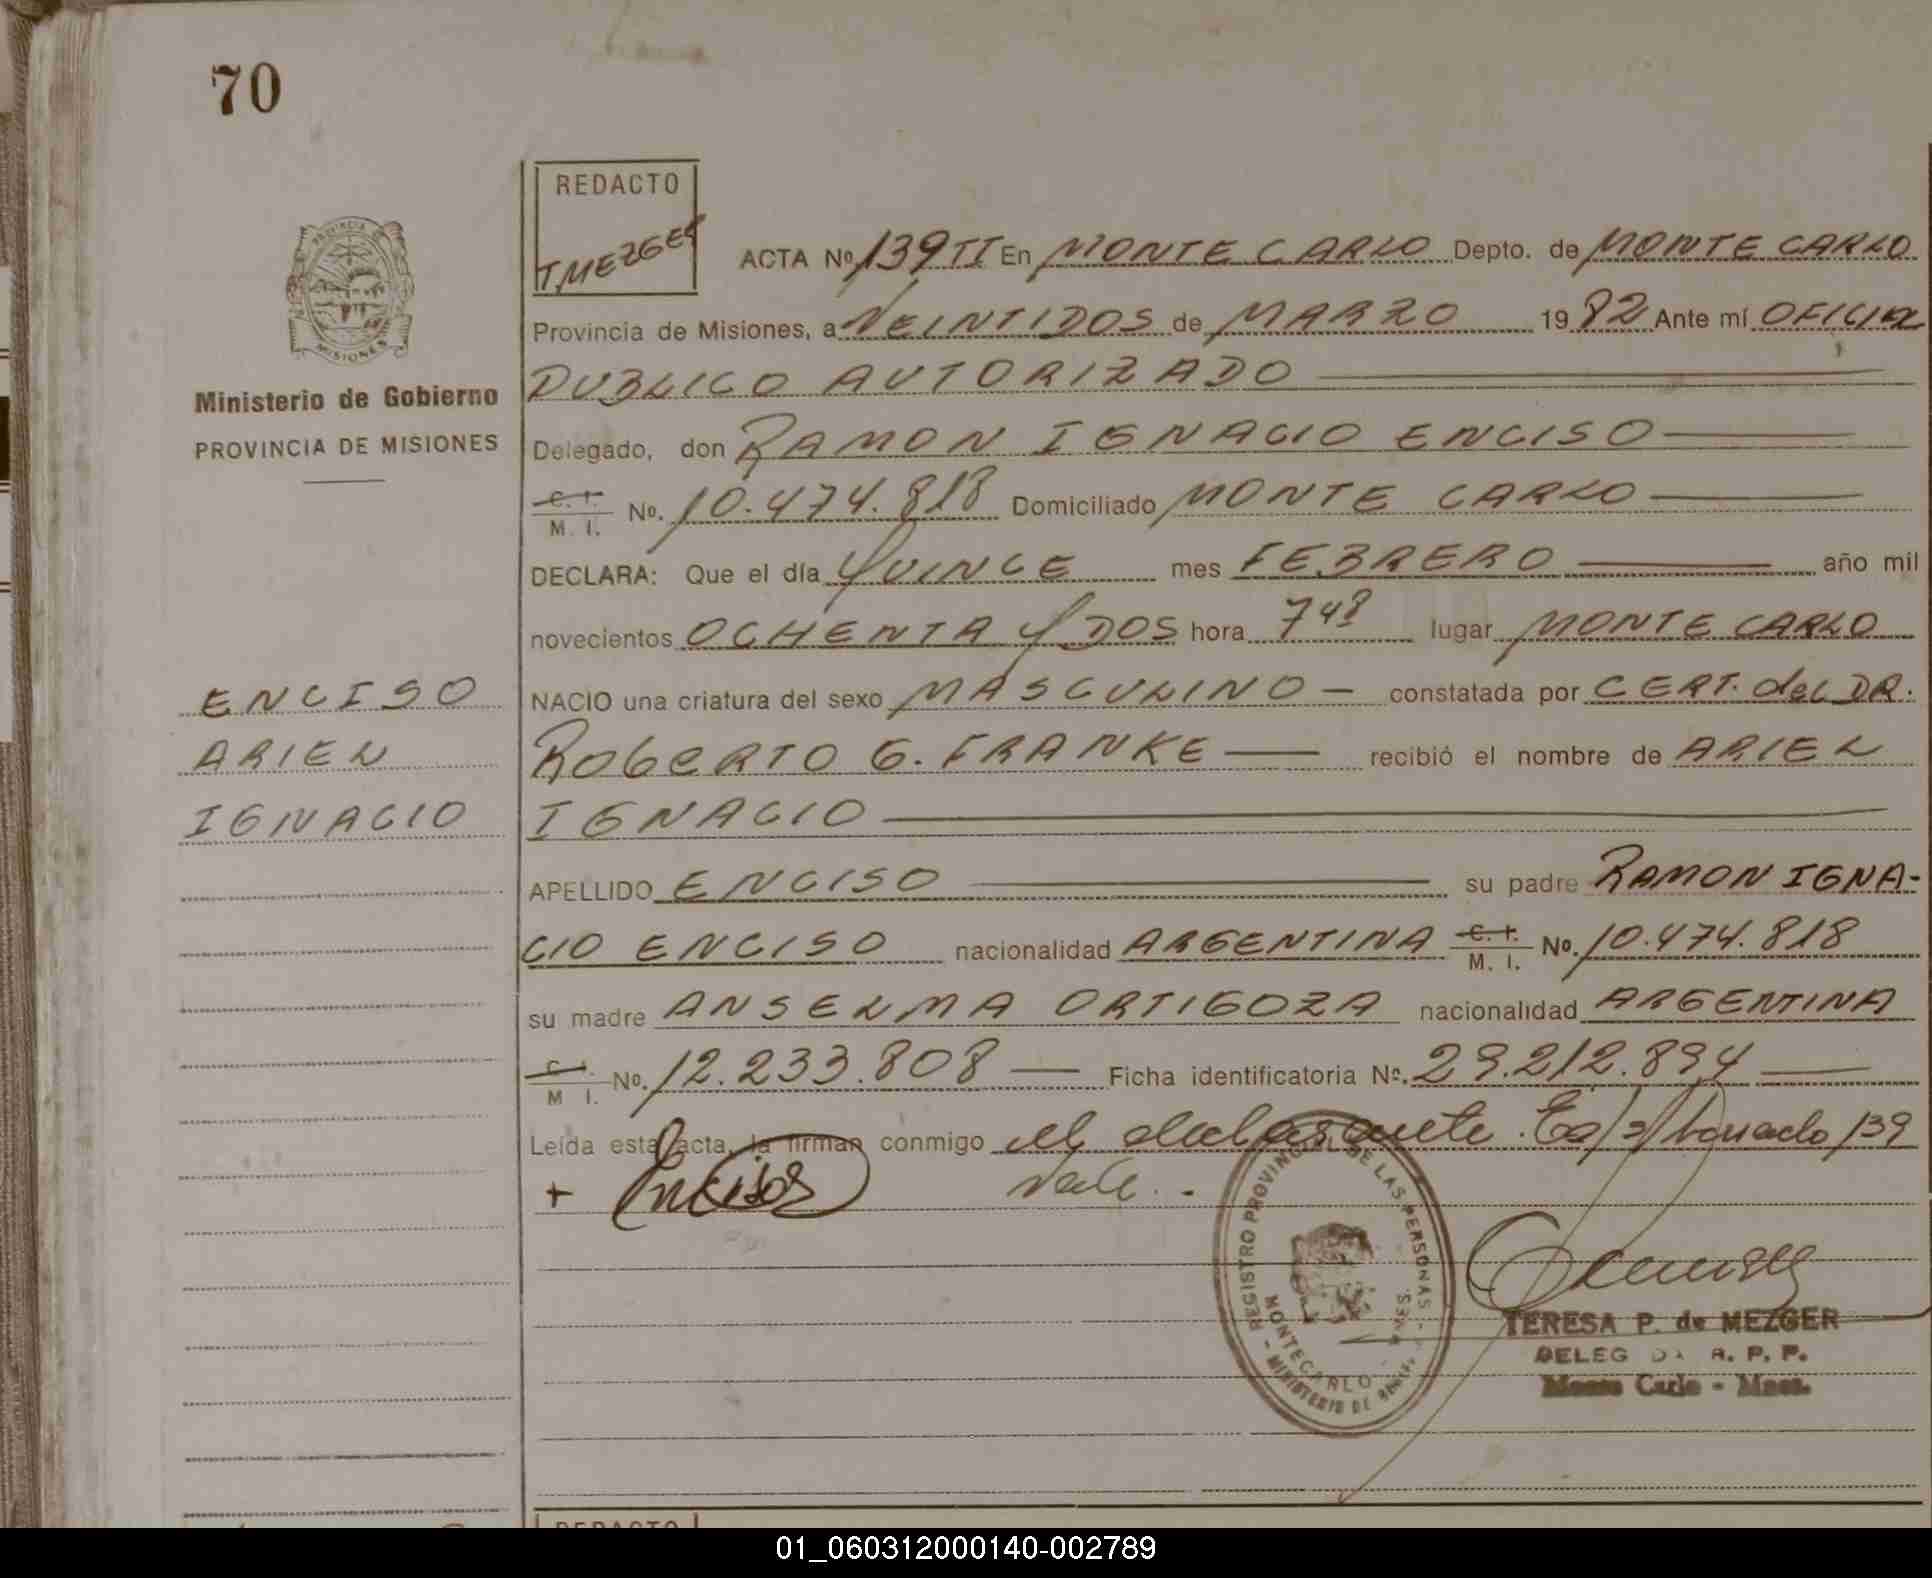 70
REDACTO
T.MEZGER
ACTA Nº 139 TI En MONTE CARLO Depto. de MONTE CARLO
Provincia de Misiones, a VEINTIDOS de MARZO 1982 Ante mí OFICIAL
PUBLICO AUTORIZADO
PROVINCIA DE
MISIONES
Ministerio de Gobierno
PROVINCIA DE MISIONES
Delegado, don RAMON IGNACIO ENCISO
C. I.
M. I. Nº. 10.474.818 Domiciliado MONTE CARLO
DECLARA: Que el día QUINCE mes FEBRERO año mil
novecientos OCHENTA Y DOS hora 748 lugar MONTE CARLO
ENCISO
NACIO una criatura del sexo MASCULINO constatada por CERT. del DR.
ARIEL
ROBERTO G. FRANKE recibió el nombre de ARIEL
IGNACIO
IGNACIO
APELLIDO ENCISO su padre RAMON IGNA-
CIO ENCISO nacionalidad ARGENTINA C. I. M. I. Nº. 10.474.818
su madre ANSELMA ORTIGOZA nacionalidad ARGENTINA
C. I.
M I. Nº. 12.233.808 Ficha identificatoria Nº. 29.212.894
Leída esta acta, la firman conmigo el 139
+ Enciso Vale.-
REGISTRO PROVINCIAL DE LAS PERSONAS
MONTECARLO
MINISTERIO DE
TERESA P. de MEZGER
DELEG R. P. P.
Monte Carlo - Mnes.
REDACTO
01_060312000140-002789